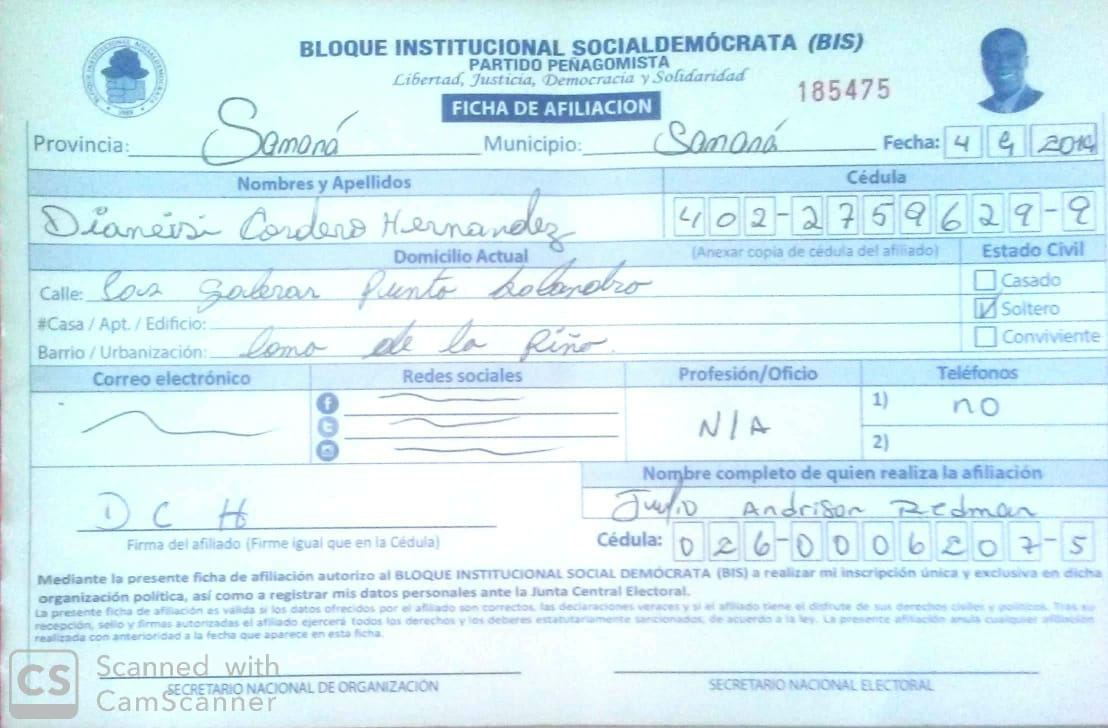 BLOQUE INSTITUCIONAL SOCIALDEMÓCRATA (BIS)
PARTIDO PEÑAGOMISTA
Libertad, Justicia, Democracia y Solidaridad
185475
FICHA DE AFILIACION
Provincia: Samaná Municipio: Samaná Fecha: 4 9 2019
Nombres y Apellidos Cédula
Dianeisi Cordero Hernandez 402-2759629-9
Domicilio Actual (Anexar copia de cédula del afiliado) Estado Civil
Calle: Las galeras Punto Casado
#Casa / Apt. / Edificio: Soltero
Barrio / Urbanización: loma de la Piña Conviviente
Correo electrónico Redes sociales Profesión/Oficio Teléfonos
N/A 1) no
2)
Nombre completo de quien realiza la afiliación
D C H Julio Andrison Redman
Firma del afiliado (Firme igual que en la Cédula) Cédula: 026-0006207-5
Mediante la presente ficha de afiliación autorizo al BLOQUE INSTITUCIONAL SOCIAL DEMÓCRATA (BIS) a realizar mi inscripción única y exclusiva en dicha
organización política, así como a registrar mis datos personales ante la Junta Central Electoral.
La presente ficha de afiliación es válida si los datos ofrecidos por el afiliado son correctos, las declaraciones veraces y si el afiliado tiene el disfrute de sus derechos civiles y políticos. Tras su
recepción, sello y firmas autorizadas el afiliado ejercerá todos los derechos y los deberes estatutariamente sancionados, de acuerdo a la ley. La presente afiliación anula cualquier afiliación
realizada con anterioridad a la fecha que aparece en esta ficha.
SECRETARIO NACIONAL DE ORGANIZACIÓN SECRETARIO NACIONAL ELECTORAL
CS Scanned with
CamScanner